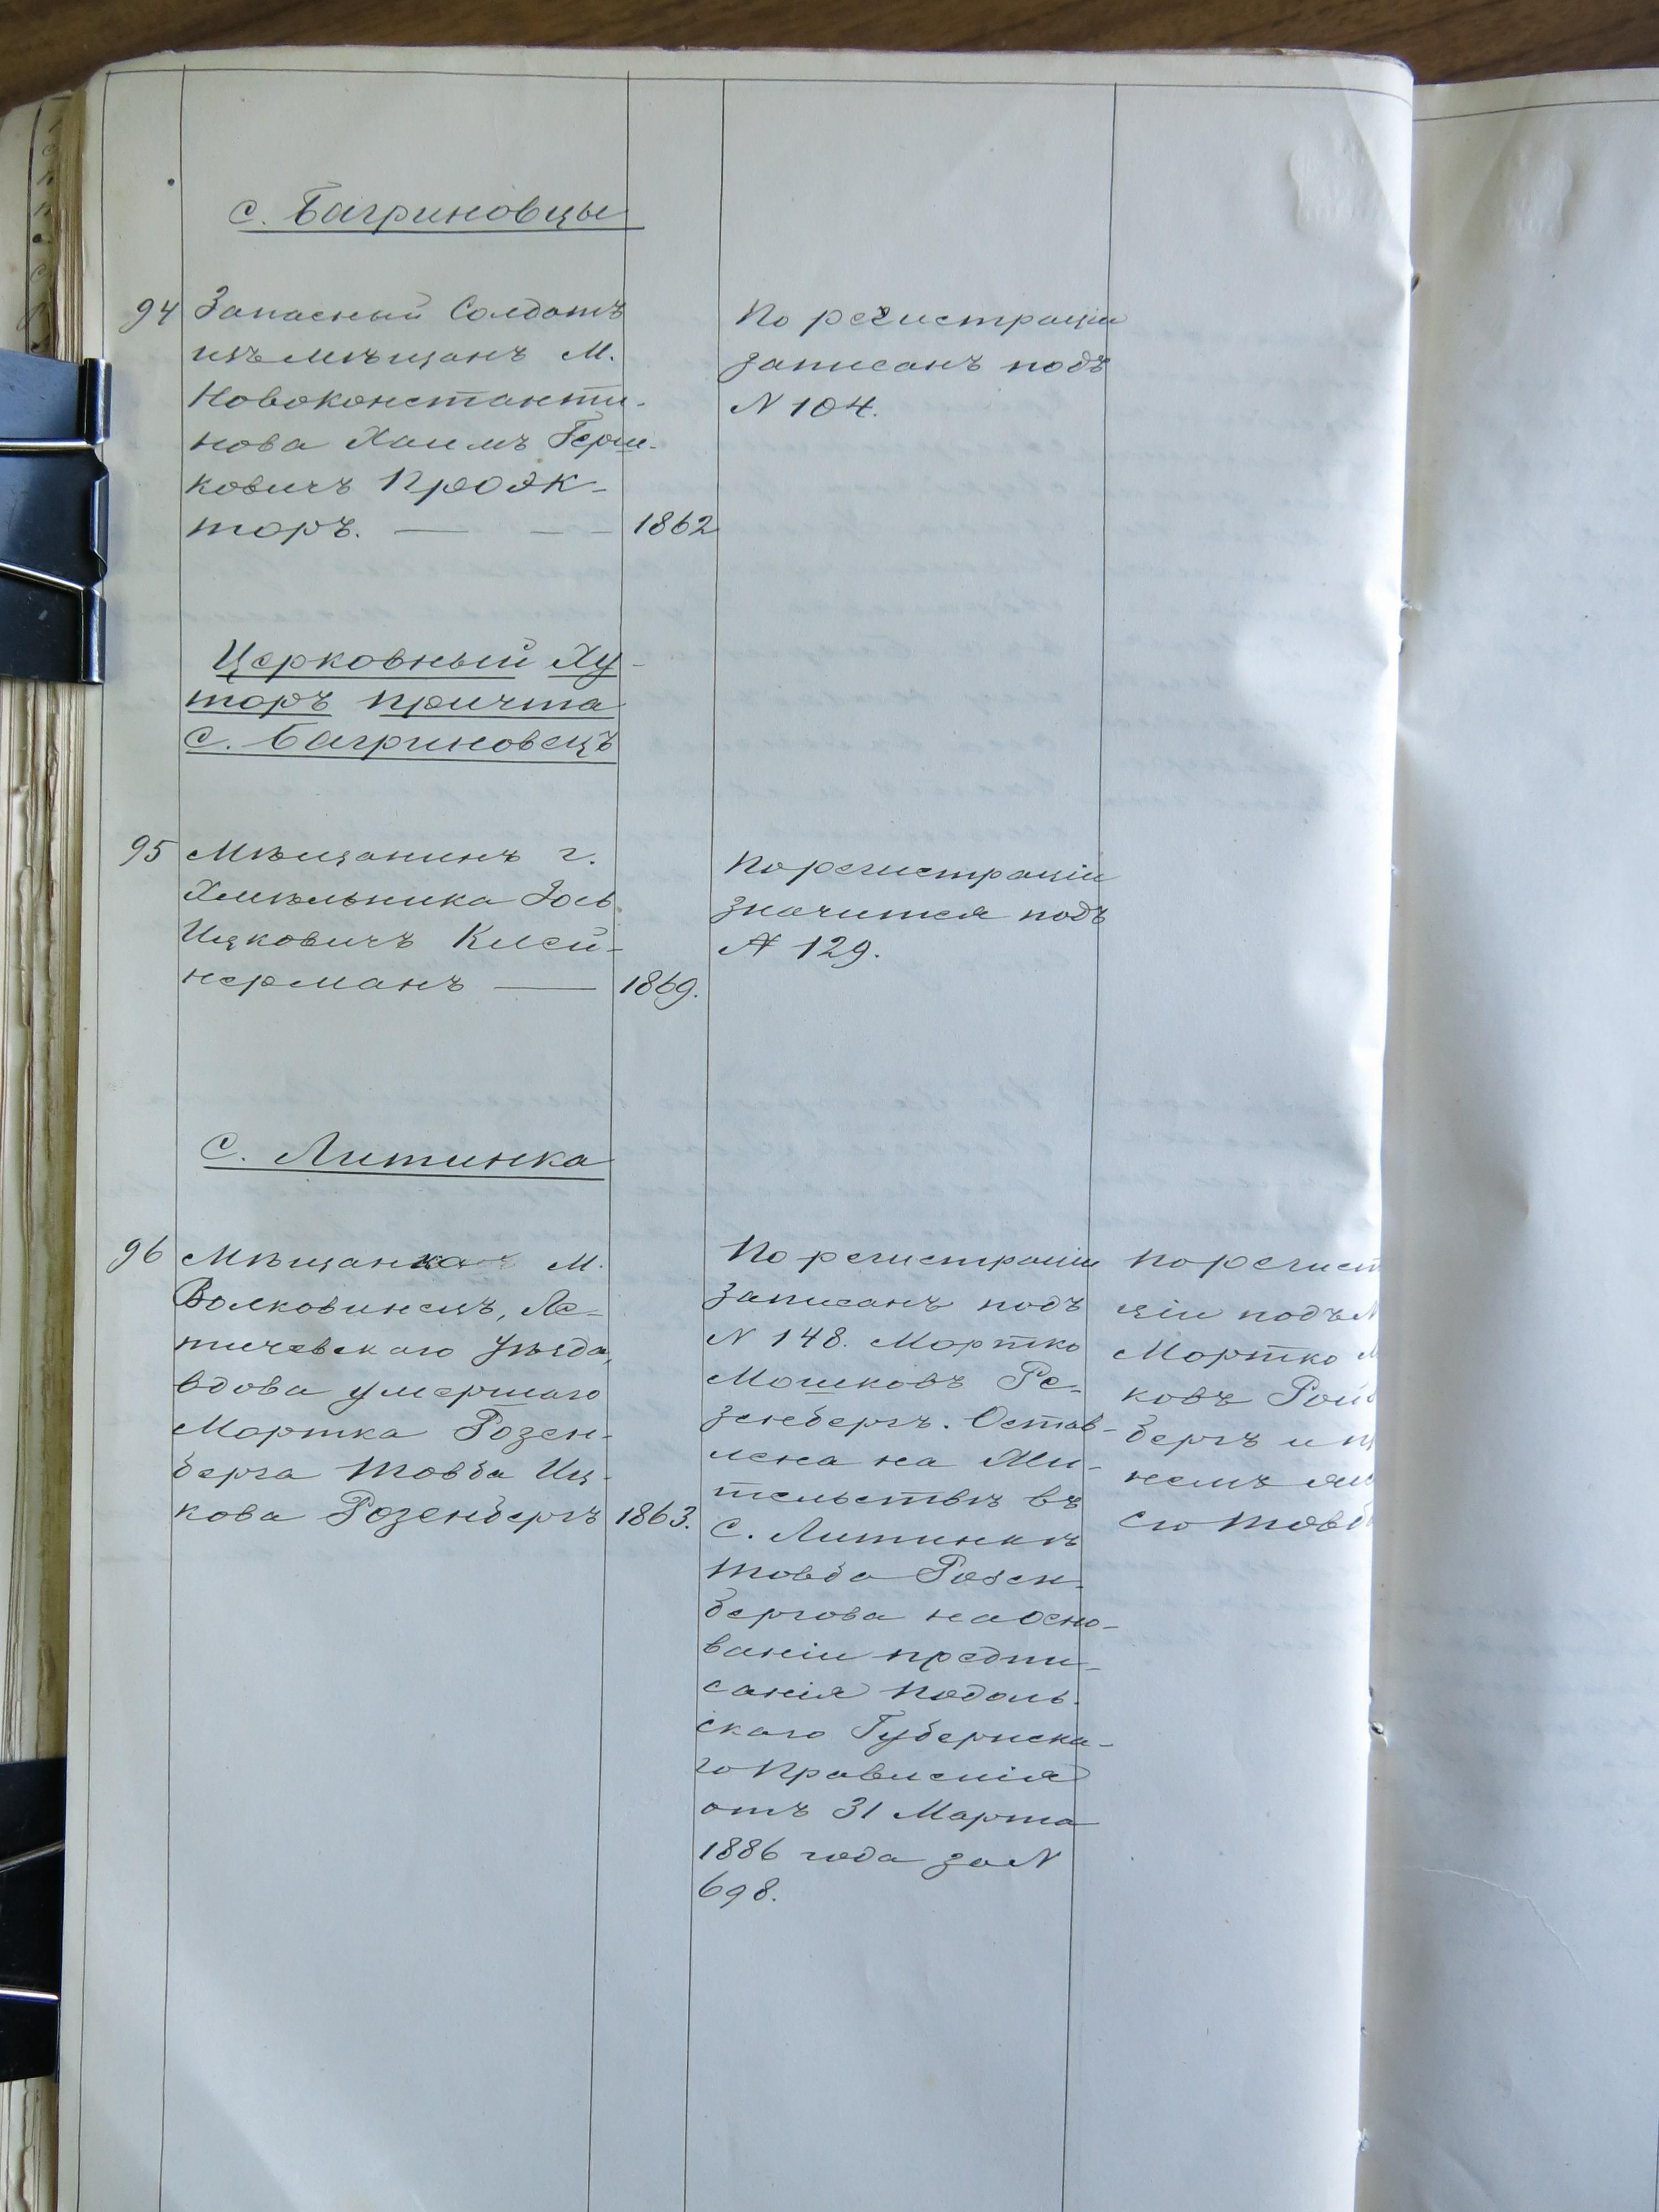 с. Багриновцы
94 Запасный Солдатъ
изъ мѣщанъ М.
Новоконстанти-
нова Хаимъ Герш-
ковичъ Проэк-
торъ. — — — 1862
По регистраціи
записанъ подъ
N 104.
Церковный Ху-
торъ причта
с. Багриновецъ
95 Мѣщанинъ г.
Хмѣльника Іось
Ицковичъ Клей-
нерманъ — 1869.
По регистраціи
значится подъ
N 129.
С. Литинка
96 Мѣщанка М.
Волковинецъ, Ле-
тичевскаго Уѣзда,
вдова умершаго
Мортка Розен-
берга Товба Иц-
кова Розенбергъ 1863.
По регистраціи
записанъ подъ
N 148. Мортко
Мошковъ Ре-
зенбергъ. Остав-
лена на Жи-
тельствѣ въ
С. Литинкѣ
Товба Розен-
бергова на осно-
ваніи предпи-
санія Подоль-
скаго Губернска-
го Правленія
отъ 31 Марта
1886 года за N
698.
По регист
ціи подъ N
Мортко М
ковъ Рой
бергъ и п
немъ
его Товб